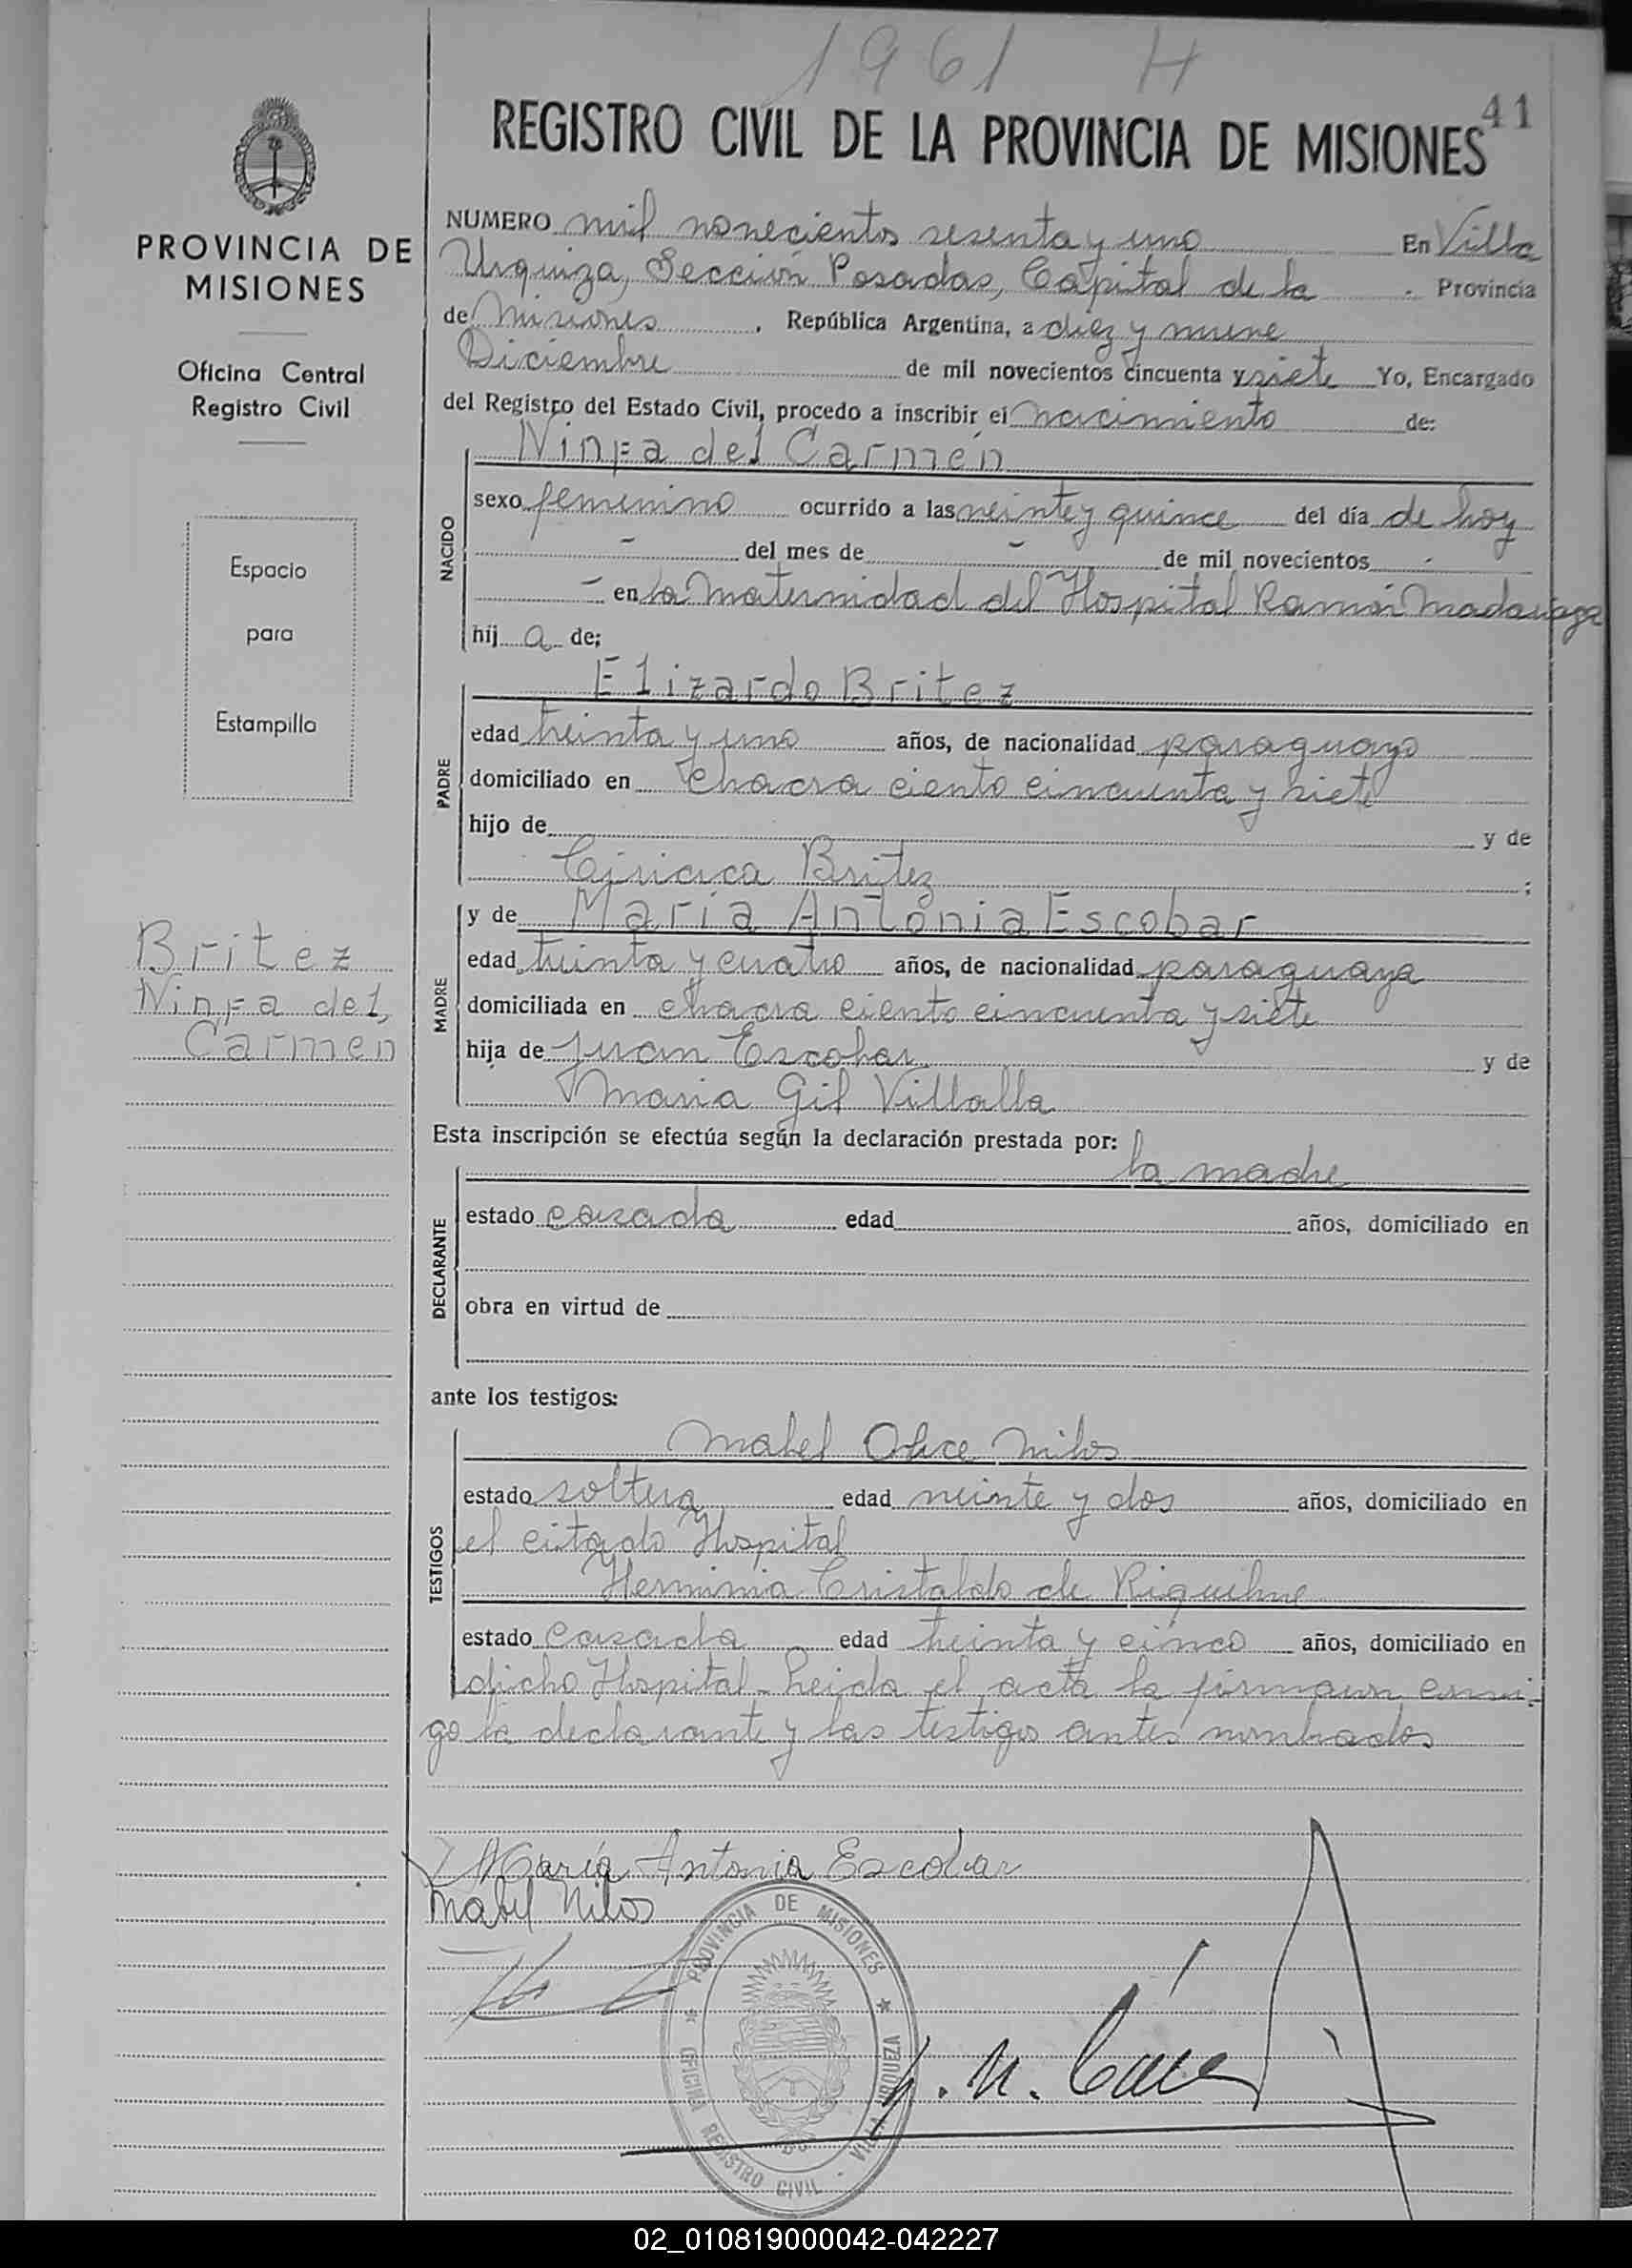 1961 H
41
REGISTRO CIVIL DE LA PROVINCIA DE MISIONES
PROVINCIA DE
MISIONES
Oficina Central
Registro Civil
Espacio
para
Estampilla
Britez
Ninfa del
Carmen
NUMERO mil novecientos sesenta y uno En Villa
Urquiza, Sección Posadas, Capital de la Provincia
de Misiones, República Argentina, a diez y nueve
Diciembre de mil novecientos cincuenta y siete Yo, Encargado
del Registro del Estado Civil, procedo a inscribir el nacimiento de:
Ninfa del Carmen
NACIDO
sexo femenino ocurrido a las veinte y quince del día de hoy
- del mes de - de mil novecientos -
- en la Maternidad del Hospital Ramón Madariaga
hij a de;
Elizardo Britez
PADRE
edad treinta y uno años, de nacionalidad paraguayo
domiciliado en chacra ciento cincuenta y siete
hijo de y de
Ciriaca Britez ;
y de María Antonia Escobar
MADRE
edad treinta y cuatro años, de nacionalidad paraguaya
domiciliada en chacra ciento cincuenta y siete
hija de Juan Escobar y de
Maria Gil Villalla
Esta inscripción se efectúa según la declaración prestada por:
la madre
DECLARANTE
estado casada edad años, domiciliado en
obra en virtud de
ante los testigos:
Mabel Milos
TESTIGOS
estado soltera edad veinte y dos años, domiciliado en
el citado Hospital
Herminia Cristaldo de
estado casada edad treinta y cinco años, domiciliado en
dicho Hospital - Leida el acta la firmaron conmi-
go la declarante y las testigos antes nombrados
María Antonia Escobar
Mabel Milos
PROVINCIA DE MISIONES
OFICINA REGISTRO CIVIL - VILLA URQUIZA
02_010819000042-042227